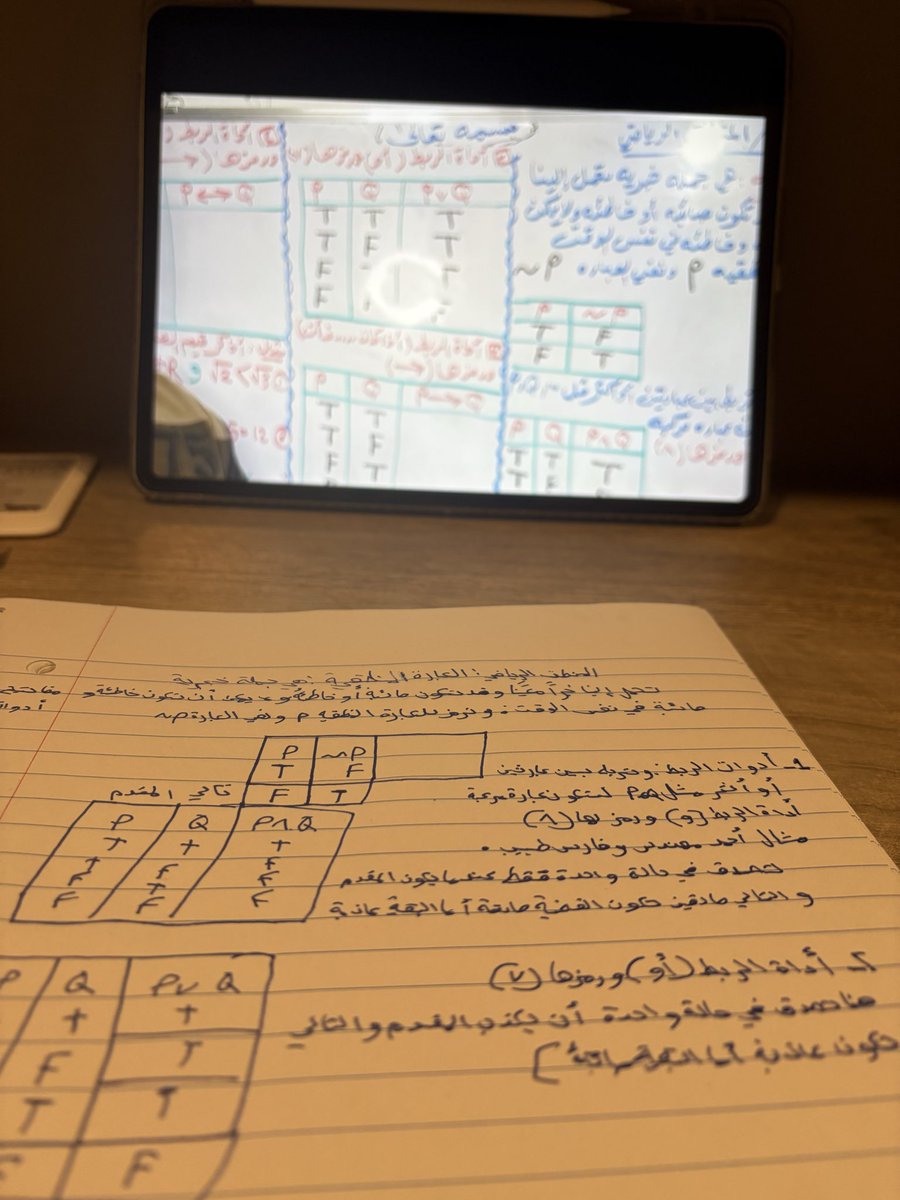 المنطق الرياضي
هي جملة خبرية تنقل إلينا
تكون صائبه أو خاطئه ولا يمكن
وخاطئه في نفس الوقت
P ونفي العباره ~P
P ~P
T F
F T
P Q P∧Q
T T T
T F
ورمزها (∧)
أداة الربط (أو) ورمزها (∨)
P Q P∨Q
T T T
T F T
F
F
أداة الربط (إذا كان ... فإن)
ورمزها (→)
P Q P→Q
T T
T F
F T
أداة الربط (
ورمزها (↔
P↔Q
√2<√3
المنطق الرياضي: العبارة المنطقية: هي جملة خبرية
تحمل إلينا خبراً معيناً وقد تكون صائبة أو خاطئة و لا يمكن أن تكون خاطئة و
صائبة في نفس الوقت. ونرمز للعبارة المنطقيه P ونفي العبارة ~P
P ~P
T F
F T
1- أدوات الربط: ونربط بين عبارتين
أو أكثر مثل P,Q لتكون عبارة مركبة
أداة الربط (و) ورمزها (∧)
مثال أحمد مهندس وفارس طبيب.
تصدق في حالة واحدة فقط عندما يكون المقدم
والتالي صادقين تكون القضية صادقة أما البقية كاذبة
تالي المقدم
P Q P∧Q
T T T
T F F
F T F
F F F
2- أداة الربط (أو) ورمزها (∨)
هنا تصدق في حالة واحدة أن يكذب المقدم والتالي
تكون كاذبة أما البقية صائبة
P Q P∨Q
T T
F T
T T
F F